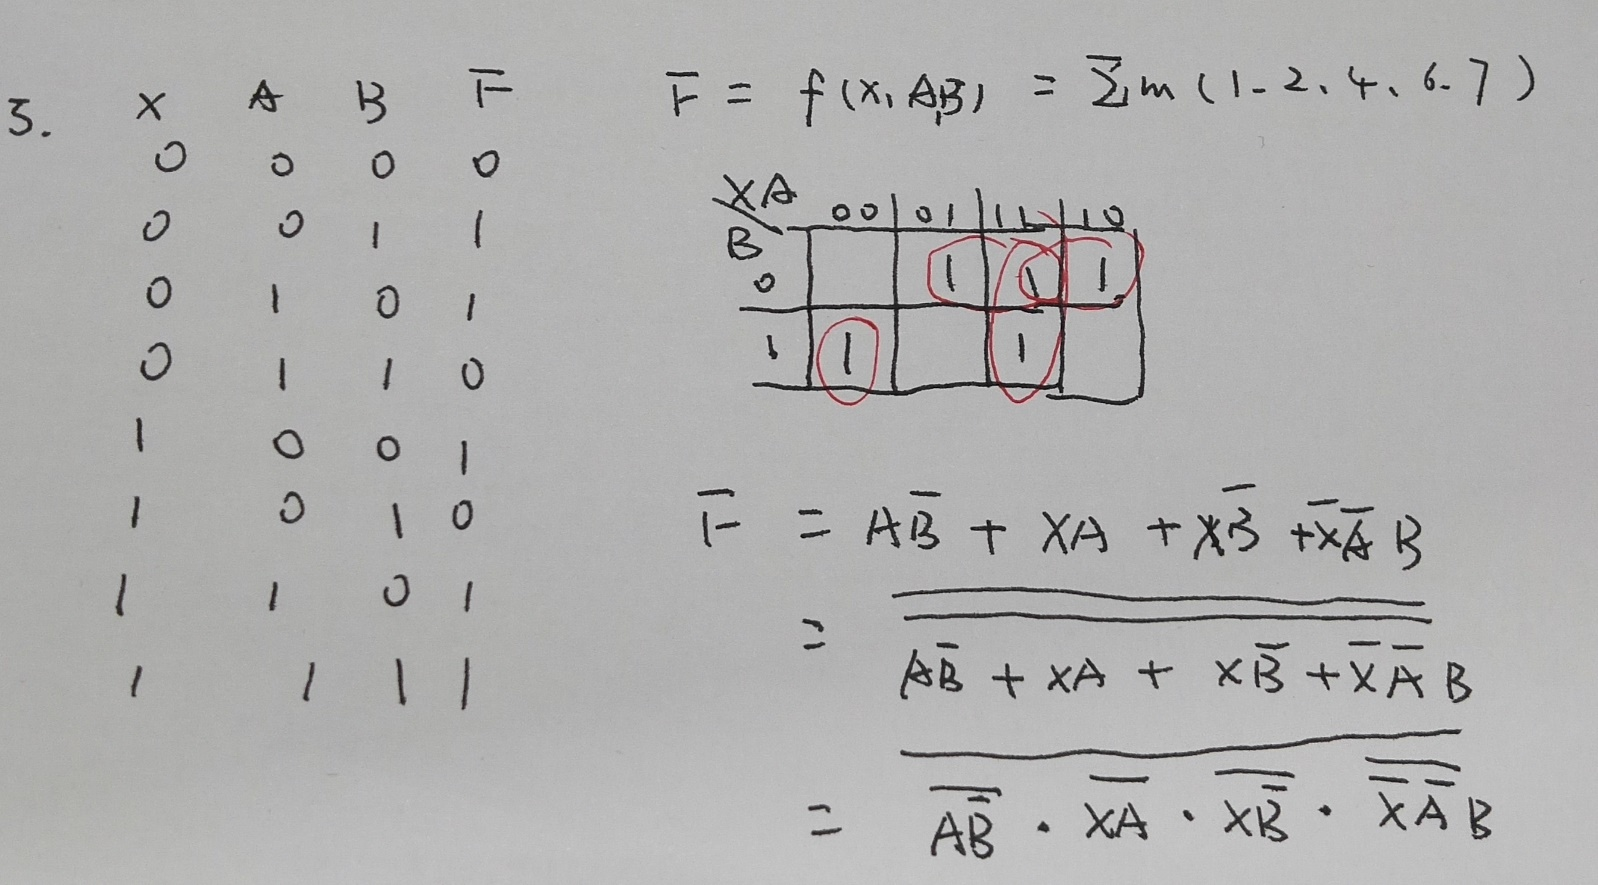 3. X A B F̅
0 0 0 0
0 0 1 1
0 1 0 1
0 1 1 0
1 0 0 1
1 0 1 0
1 1 0 1
1 1 1 1
F̅ = f(X, A,B) = Σm(1-2、4、6-7)
XA 00 01 11 10
B
0 1 1 1
1 1 1
F̅ = AB̅ + XA + XB̅ + X̅A̅B
= \overline{\overline{AB̅ + XA + XB̅ + X̅A̅B}}
= \overline{\overline{AB̅} · \overline{XA} · \overline{XB̅} · \overline{X̅A̅B}}